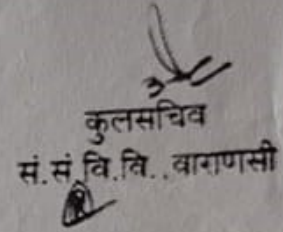 कुलसचिव
सं.सं.वि.वि..वाराणसी